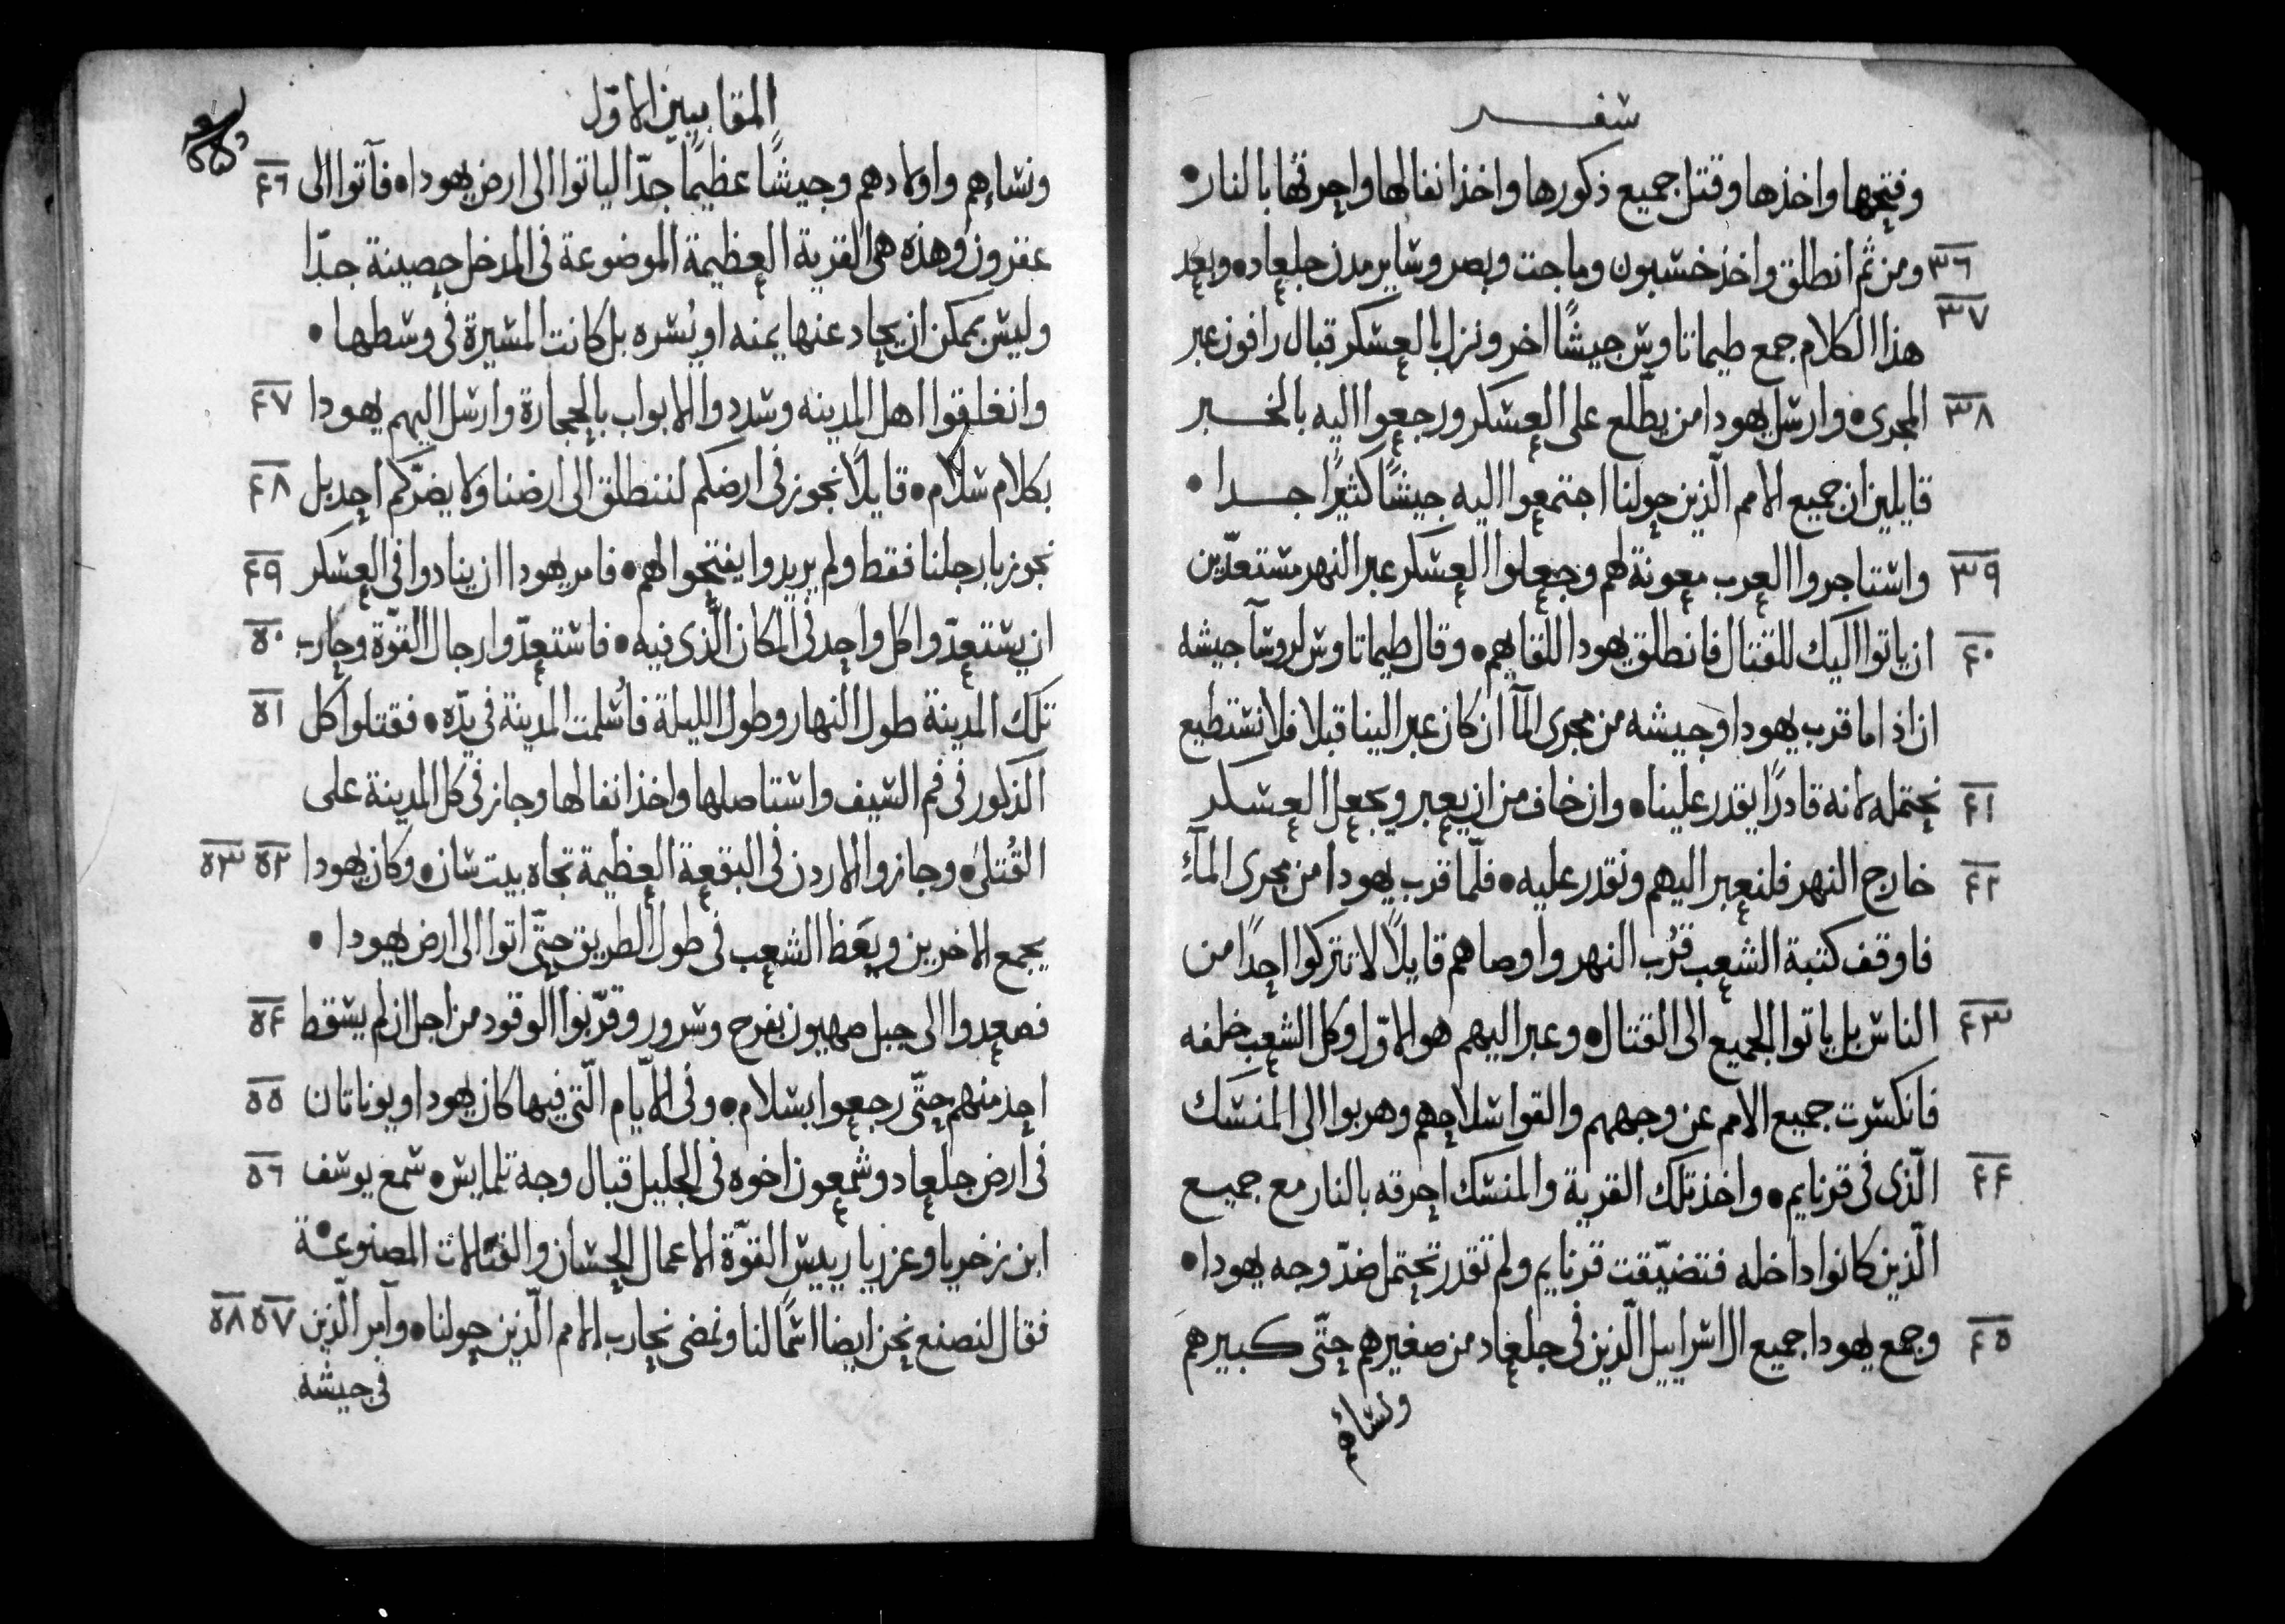 سفر
وفتحها واخذها وقتل جميع ذكورها واخذ انفالها واحرقها بالنار •
٣٦ ومن ثم انطلق واخذ خشبون وماجت وبصر وساير مدن جلعاد • وبعد
٣٧ هذا الكلام جمع طيماتاوس جيشًا اخر ونزل بالعسكر قبال رافون عبر
٣٨ المجرى • وارسل يهودا من يطّلع على العسكر ورجعوا اليه بالخبر
قايلين ان جميع الامم الّذين حولنا اجتمعوا اليه جيشًا كثيرًا جدا •
٣٩ واستاجروا العرب معونة لهم وجعلوا العسكر عبر النهر مستعدّين
٤٠ ان ياتوا اليك للقتال فانطلق يهودا للقايهم • وقال طيماتاوس لروسآ جيشه
ان اذا ما قرب يهودا وجيشه من مجرى المآ ان كان عبر الينا قبلا فلا نستطيع
٤١ نحتمله لانه قادرًا يقدر علينا • وان خاف من ان يعبر ويجعل العسكر
٤٢ خارج النهر فلنعبر اليهم ونقدر عليه • فلمّا قرب يهودا من مجرى المآء
فاوقف كتبة الشعب قرُب النهر واوصاهم قايلًا لا تتركوا احدًا من
٤٣ الناس بل ياتوا الجميع الى القتال • وعبر اليهم هو الاوّل وكل الشعب خلفه
فانكسرت جميع الامم عن وجههم والقوا سلاحهم وهربوا الى المنسك
٤٤ الّذى فى قرنايم • واخذ تلك القرية والمنسك احرقه بالنار مع جميع
الّذين كانوا داخله فتضيّقت قرنايم ولم تقدر تحتمل ضدّ وجه يهودا •
٤٥ وجمع يهودا جميع ال اسراييل الّذين فى جلعاد من صغيرهم حتّى كبيرهم
ونسائهم
المقابيين الاوّل
ونسايهم واولادهم وجيشًا عظيمًا جدّا لياتوا الى ارض يهودا • فآتوا الى ٤٦
عفرون وهذه هى القرية العظيمة الموضوعة فى المدخل حصينة جدّا
وليس يمكن ان يحاد عنها يمنه او يُسره بل كانت المسيرة فى وسطها •
وانغلقوا اهل المدينه وسددوا الابواب بالحجارة وارسل اليهم يهودا ٤٧
بكلام سلام • قايلًا نجوز فى ارضكم لننطلق الى ارضنا ولا يضرّكم احد بل ٤٨
نجوز بارجلنا فقط ولم يريدوا يفتحوا لهم • فامر يهودا ان ينادوا فى العسكر ٤٩
ان يستعدّوا كل واحد فى المكان الّذى فيه • فاستعدّوا رجال القوّة وحارب ٥٠
تلك المدينة طول النهار وطول الليلة فاُسلمت المدينة فى يدّه • فقتلوا كل ٥١
الذكور فى فم السيف واستاصلها واخذ انفالها وجاز فى كل المدينة على
القُتلى • وجازوا الاردن فى البقعة العظيمة تجاه بيت سان • وكان يهودا ٥٢ ٥٣
يجمع الاخرين ويعَظ الشعب فى طول الطريق حتّى اتوا الى ارض يهودا •
فصعدوا الى جبل صهيون بفرح وسرور وقرّبوا الوقود من اجل ان لم يسقط ٥٤
احد منهم حتّى رجعوا بسلام • وفى الايّام الّتى فيها كان يهودا ويوناتان ٥٥
فى ارض جلعاد وشمعون اخوه فى الجليل قبال وجه تلمايس • سمع يوسف ٥٦
ابن زخريا وعزريا رييس القوّة الاعمال الحسان والقتالات المصنوعة •
فقال لنصنع نحن ايضا اسمًا لنا ونمضى نحارب الامم الّذين حولنا • وآمر الّذين ٥٧ ٥٨
فى جيشه